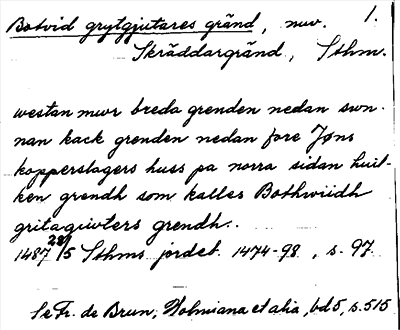 Botvid grytgjutares gränd, nuv. 1.
Skräddargränd, Sthm.
westan mwr breda grenden nedan swn-
nan kack grenden nedan fore Jøns
kopperslagers huss pa norra sidan huil-
ken grendh som kalles Bothwiidh
gritagiwters grendh.
1487 28/5 Sthms jordeb. 1474-98, s. 97
Se Fr. de Brun, Holmiana et alia, bd 5, s. 515